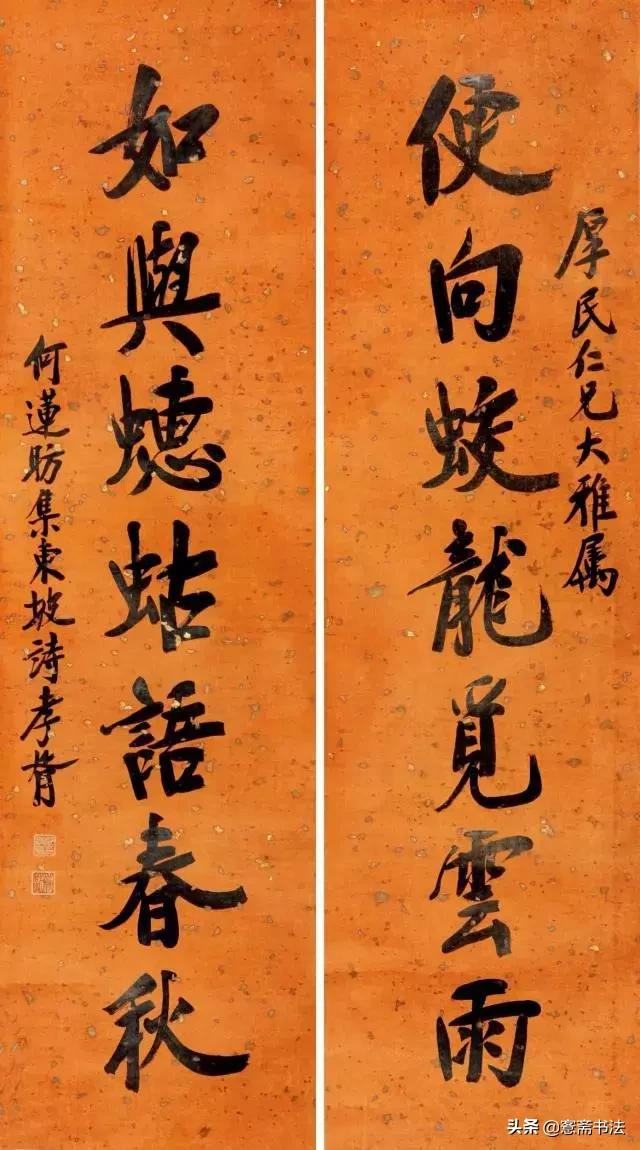 厚民仁兄大雅属
使向蛟龍覓雲雨
如與蟪蛄語春秋
何蓮昉集東坡詩孝胥
头条 @愙斋书法